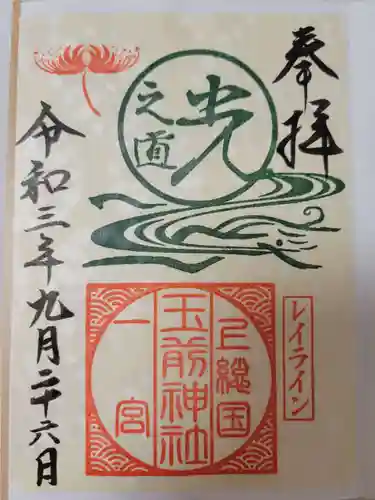 奉拝
光
之道
レイライン
上総国
玉前神社
一宮
令和三年九月二十六日